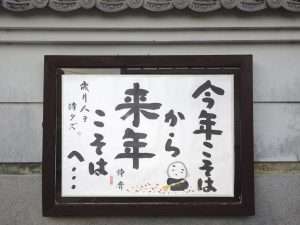 今年こそは
から
来年
こそは
へ・・・
歳月人を
待タズ。